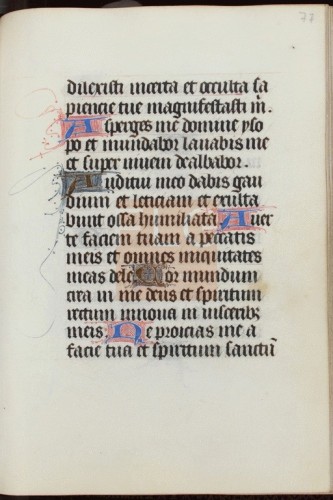 78
dilexisti incerta et occulta sa
piencie tue magnifestasti m̄.
Asperges me domine yso
po et mundabor lavabis me
et super nivem dealbabor.
Auditui meo dabis gau
dium et leticiam et exulta
bunt ossa humiliata. Aver
te faciem tuam a peccatis
meis et omnes iniquitates
meas dele. Cor mundum
crea in me deus et spiritum
rectum innova in visceribꝫ
meis. Ne proicias me a
facie tua et spiritum sanctū